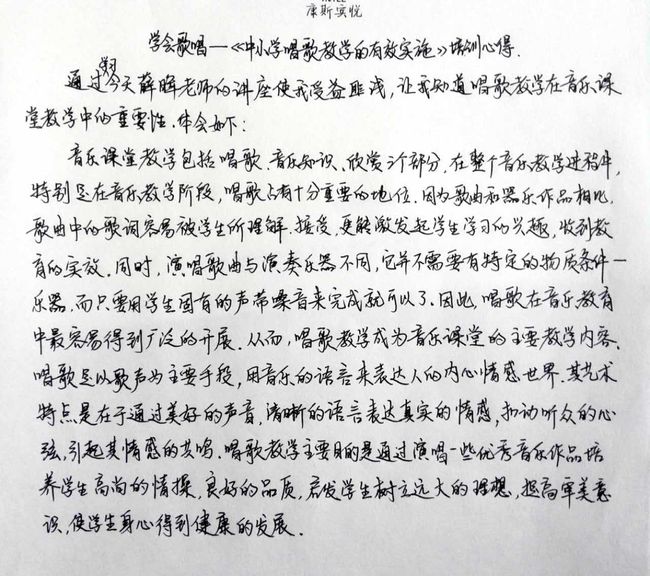 康斯宾悦
学会歌唱—《中小学唱歌教学的有效实施》培训心得.
通过今天薛晖老师的讲座使我受益匪浅,让我知道唱歌教学在音乐课
堂教学中的重要性.体会如下:
音乐课堂教学包括唱歌.音乐知识.欣赏三个部分,在整个音乐教学进程中,
特别是在音乐教学阶段,唱歌占有十分重要的地位.因为歌曲和器乐作品相比,
歌曲中的歌词容易被学生所理解.接受,更能激发起学生学习的兴趣,收到教
育的实效.同时,演唱歌曲与演奏乐器不同,它并不需要有特定的物质条件一
乐器,而只要用学生固有的声带嗓音来完成就可以了.因此,唱歌在音乐教育
中最容易得到广泛的开展.从而,唱歌教学成为音乐课堂的主要教学内容.
唱歌是以歌声为主要手段,用音乐的语言来表达人的内心情感世界.其艺术
特点是在于通过美好的声音,清晰的语言表达真实的情感,扣动听众的心
弦,引起其情感的共鸣.唱歌教学主要目的是通过演唱一些优秀音乐作品培
养学生高尚的情操,良好的品质,启发学生树立远大的理想,提高审美意
识,使学生身心得到健康的发展.